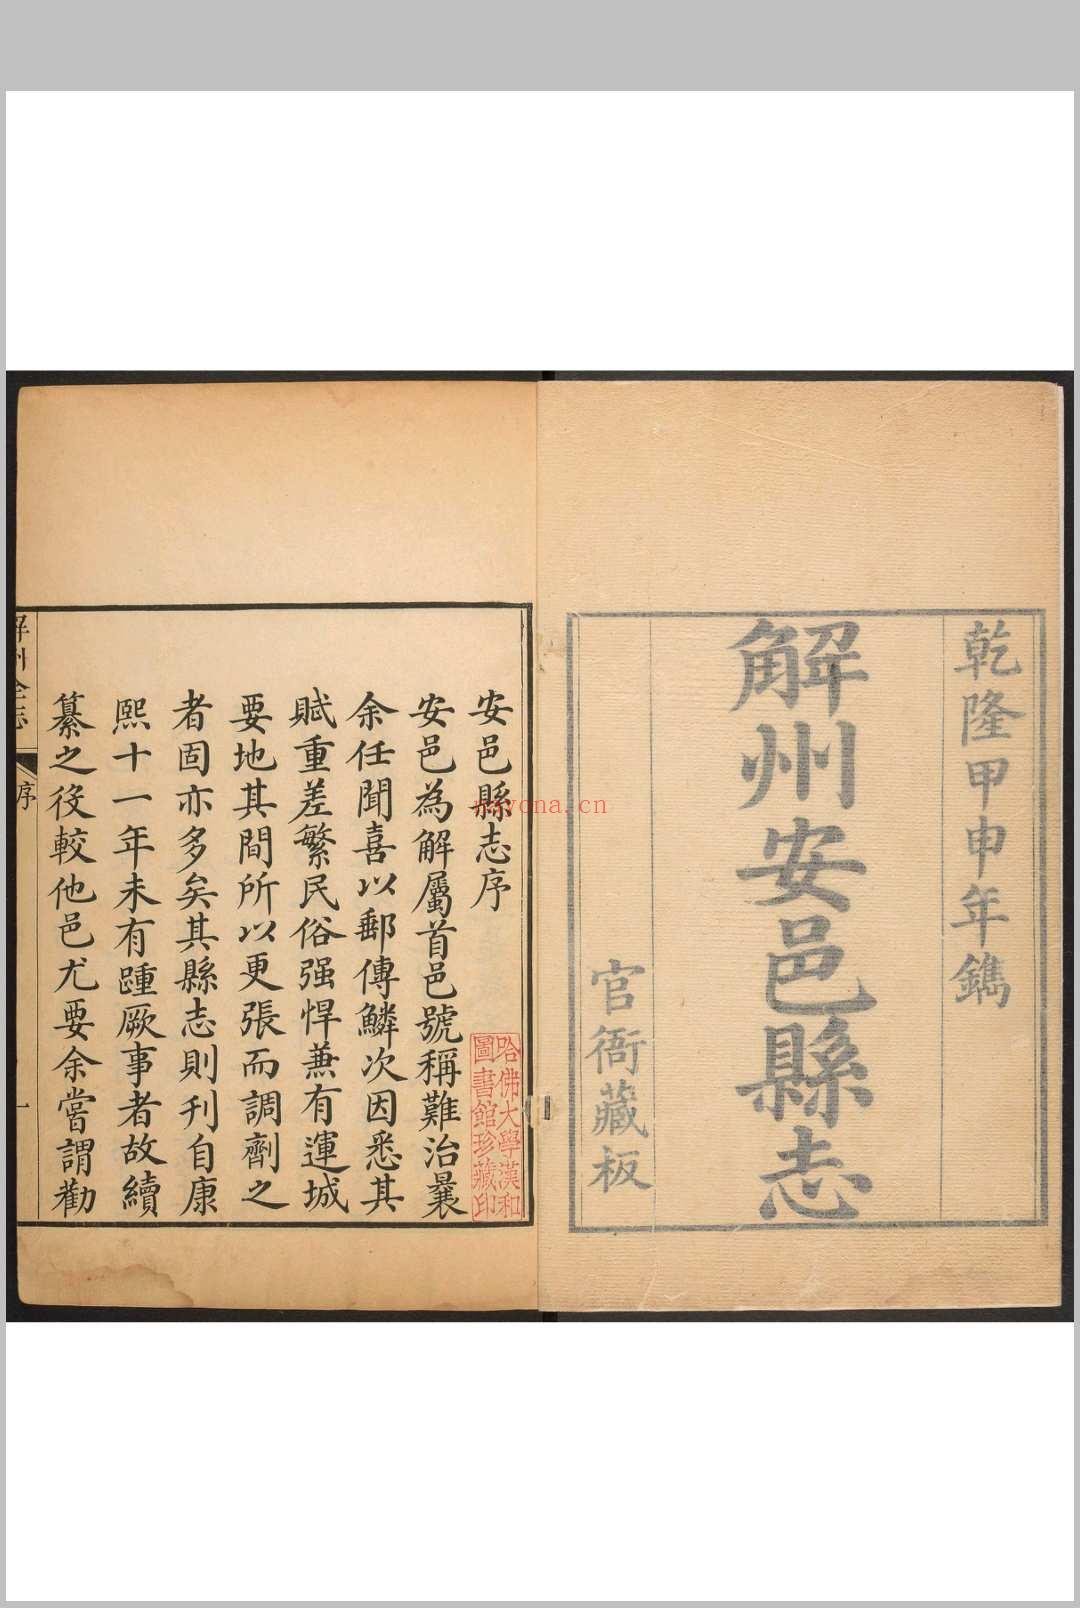 乾隆甲申年鐫
解州安邑縣志
官衙藏板
安邑縣志序
安邑為解屬首邑號稱難治曩
余任聞喜以郵傳鱗次因悉其
賦重差繁民俗强悍兼有運城
要地其間所以更張而調劑之
者固亦多矣其縣志則刊自康
熙十一年未有踵厥事者故續
纂之役較他邑尤要余嘗謂勸
哈佛大學漢和
圖書館珍藏印
解州全志
序
一
nayona.cn